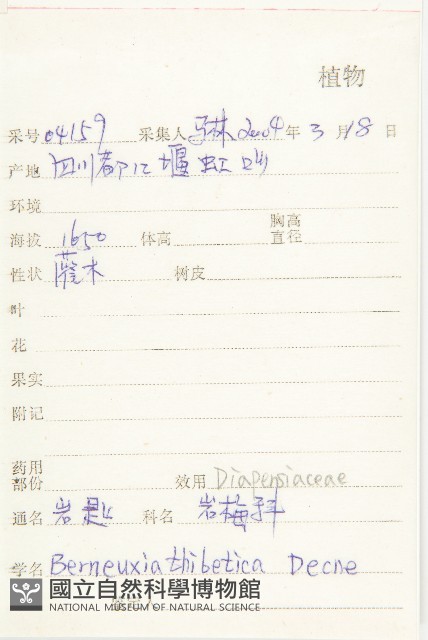 植物
采号 04159 采集人 2004年 3月18日
产地 四川都江堰虹
环境
海拔 1650 体高 胸高直径
性状 灌木 树皮
叶
花
果实
附记
药用部份 效用 Diapensiaceae
通名 岩匙 科名 岩梅科
学名 Berneuxia thibetica Decne
國立自然科學博物館
NATIONAL MUSEUM OF NATURAL SCIENCE